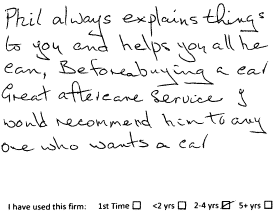 Phil always explains things
to you and helps you all he
can, Before buying a car
Great aftercare service I
would recommend him to any
one who wants a car
I have used this firm: 1st Time ☐ <2 yrs ☐ 2-4 yrs ☑ 5+ yrs ☐